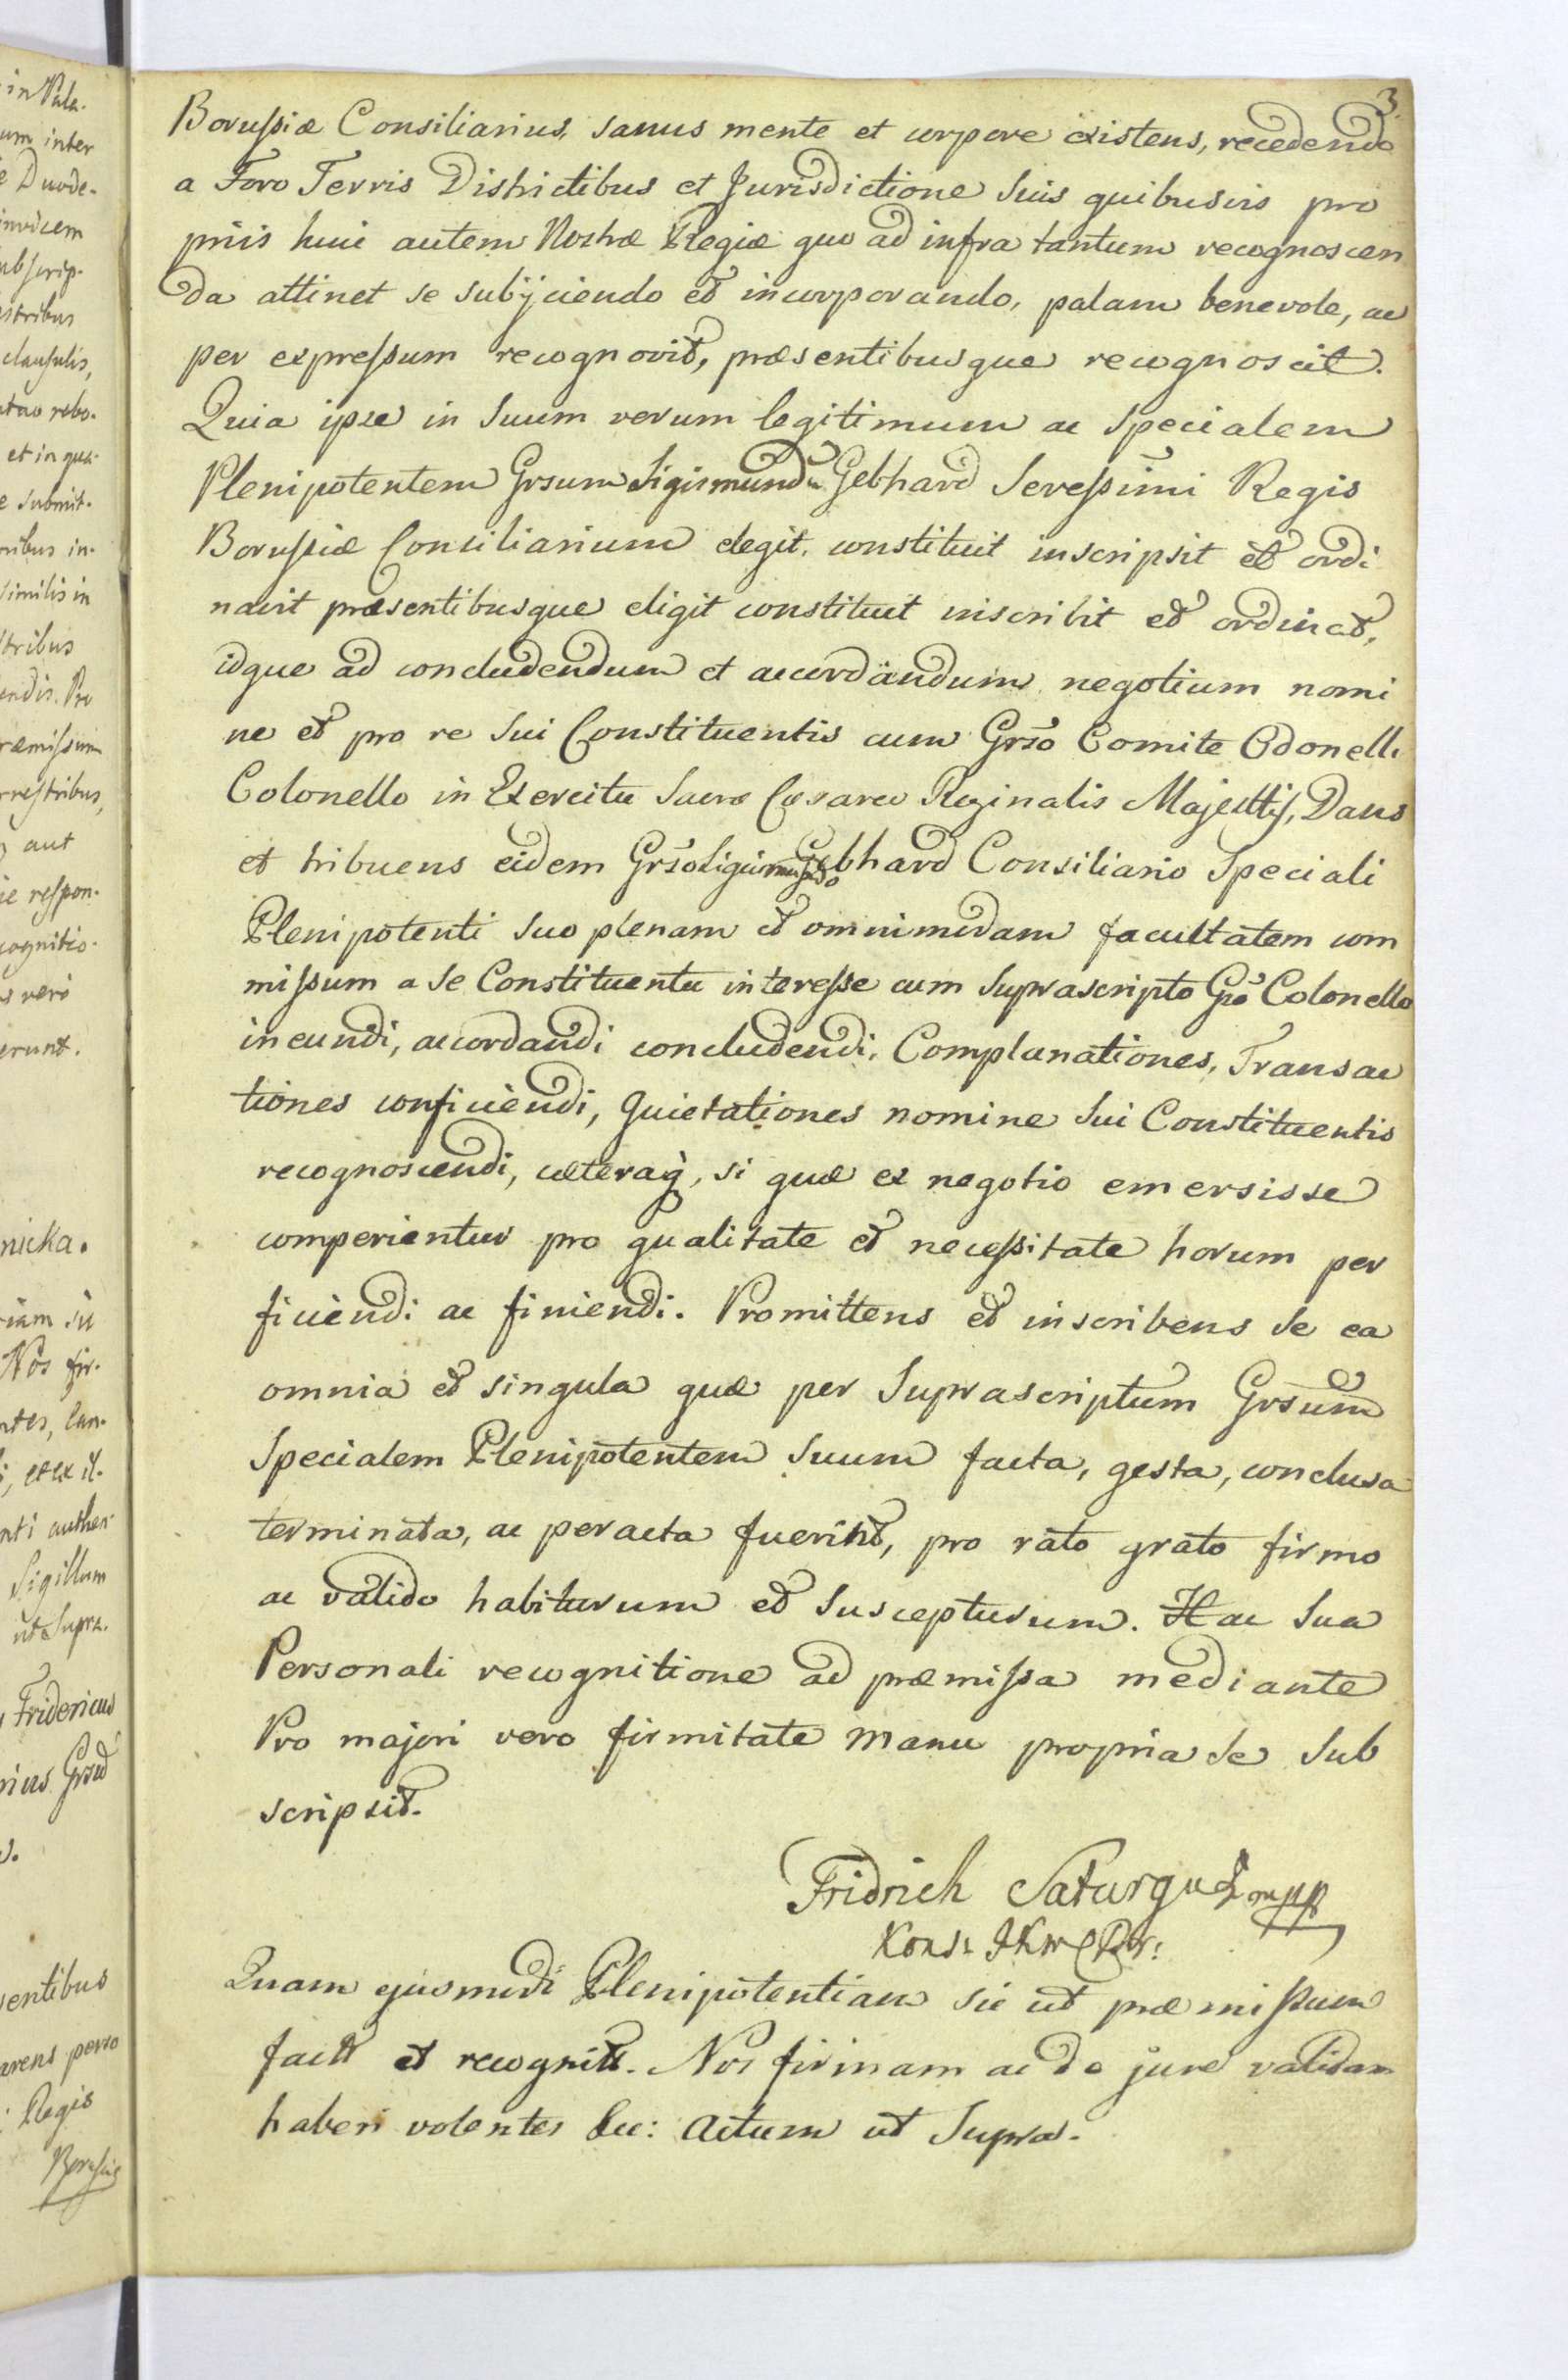 3.
Borussiæ Consiliarius, sanus mente et corpore existens, recedendo
a Foro Terris Districtibus et Jurisdictione suis quibusvis pro
priis huic autem Nostræ Regiæ quo ad infra tantum recognoscen
da attinet se subijciendo et incorporando, palam benevole, ac
per expressum recognovit, præsentibusque recognoscit.
Quia ipse in suum verum legitimum ac specialem
Plenipotentem Grsum Sigismundum Gebhard Seressimi Regis
Borussiæ Consiliarium elegit, constituit inscripsit et ordi
navit præsentibusque eligit constituit inscribit et ordinat,
idque ad concludendum et accordandum negotium nomi
ne et pro re sui Constituentis cum Grso Comite Odonelli
Colonello in Exercitu Sacræ Cæsareo Reginalis Majesttis, Dans
et tribuens eidem Grso Sigismundo Gebhard Consiliario Speciali
Plenipotenti suo plenam et omnimodam facultatem com
missum a se Constituente interesse cum suprascripto Gso Colonello
ineundi, accordandi concludendi, Complanationes, Transac
tiones conficiendi, Quietationes nomine sui Constituentis
recognoscendi, cæteraq, si quæ ex negotio emersisse
comperientur pro qualitate et necessitate horum per
ficiendi ac finiendi. Promittens et inscribens se ea
omnia et singula quæ per suprascriptum Grsum
Specialem Plenipotentem suum facta, gesta, conclusa
terminata, ac peracta fuerint, pro rato grato firmo
ac valido habiturum et suscepturum. Hac sua
Personali recognitione ad præmissa mediante
Pro majori vero firmitate manu propria se sub
scripsit.
Fridrich Saturgus mpp
Quam ejusmodi Plenipotentiam sic ut præmissum
factt et recognitt. Nos firmam ac de jure validam
haberi volentes &c: Actum ut supra.